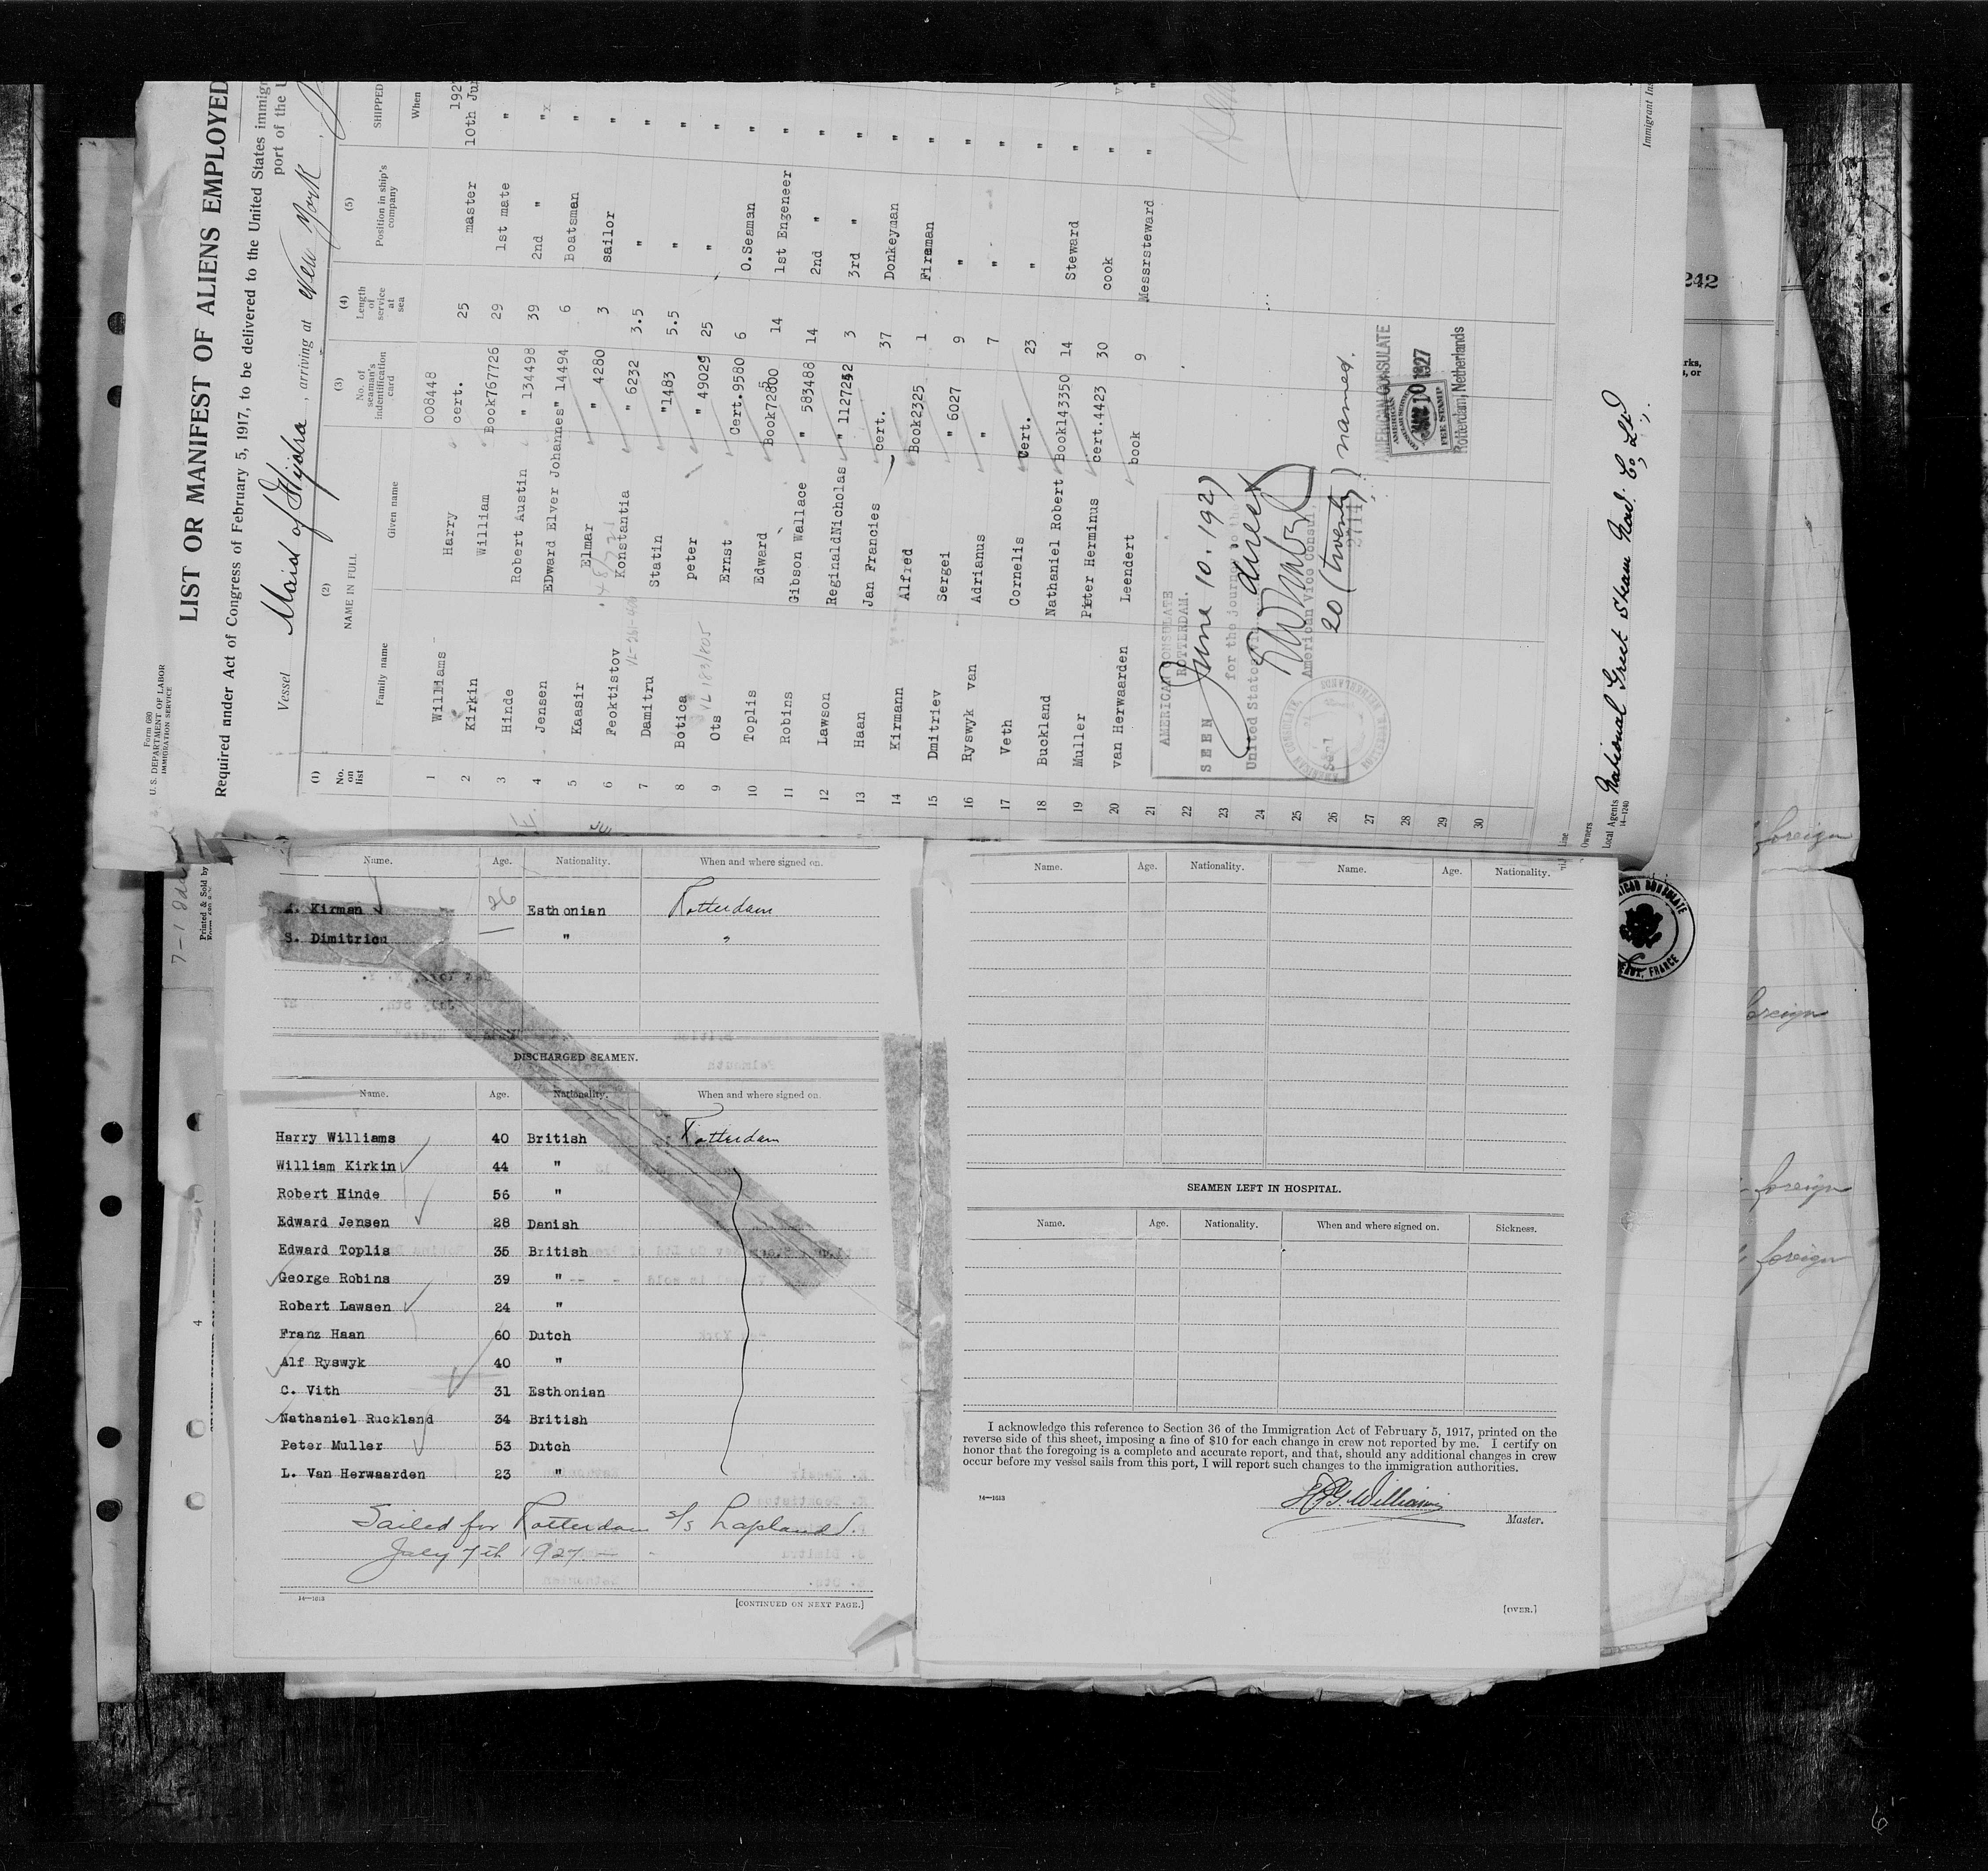 Form 680
U. S. DEPARTMENT OF LABOR
IMMIGRATION SERVICE
LIST OR MANIFEST OF ALIENS EMPLOYED
Required under Act of Congress of February 5, 1917, to be delivered to the United States immigr
port of the U
Vessel Maid of , arriving at New York
(1) (2) (3) (4) (5)
No. on list NAME IN FULL No. of seaman's indentification card Length of service at sea Position in ship's company SHIPPED
Family name Given name When
192
1 Williams Harry 008448 25 master 10th Jun
2 Kirkin William cert. 29 1st mate "
3 Hinde Robert Austin Book767726 39 2nd " "
4 Jensen EDward Elver Johannes " 134498 6 Boatsman "
5 Kaasir Elmar " 14494 3 sailor "
6 Feoktistov Konstantia " 4280 3.5 " "
7 Damitru Statin " 6232 5.5 " "
8 Botica peter "1483 25 " "
9 Ots Ernst " 49029 6 O.Seaman "
10 Toplis Edward Cert.9580 14 1st Engeneer "
11 Robins Gibson Wallace 14 2nd " "
12 Lawson ReginaldNicholas " 583488 3 3rd " "
13 Haan Jan Francies 37 Donkeyman "
14 Kirmann Alfred cert. 1 Fireman "
15 Dmitriev Sergei Book2325 9 " "
16 Ryswyk van Adrianus " 6027 7 " "
17 Veth Cornelis " 23 " "
18 Buckland Nathaniel Robert Cert. 14 Steward "
19 Muller Pieter Herminus Book143350 30 cook "
20 van Herwaarden Leendert cert.4423 9 Messrsteward "
21 book
22
23
24
25
26
27
28
29
30
AMERICAN CONSULATE
ROTTERDAM.
SEEN June 10. 1927
for the journey to the
United States direct
American Vice Consul.
20 (twenty) names.
AMERICAN CONSULATE
FEE STAMP
Rotterdam, Netherlands
Owners
Local Agents National Greek Steam Nav. Co. Ltd
14—1240
Immigrant Ins
Name. Age. Nationality. When and where signed on.
Kirman 26 Esthonian Rotterdam
S. Dimitricu " "
DISCHARGED SEAMEN.
Name. Age. Nationality. When and where signed on.
Harry Williams 40 British Rotterdam
William Kirkin 44 "
Robert Hinde 56 "
Edward Jensen 28 Danish
Edward Toplis 35 British
George Robins 39 "
Robert Lawsen 24 "
Franz Haan 60 Dutch
Alf Ryswyk 40 "
C. Vith 31 Esthonian
Nathaniel Ruckland 34 British
Peter Muller 53 Dutch
L. Van Herwaarden 23 "
Sailed for Rotterdam s/s Lapland.
July 7th 1927
14—1613
[CONTINUED ON NEXT PAGE.]
Name. Age. Nationality. Name. Age. Nationality.
SEAMEN LEFT IN HOSPITAL.
Name. Age. Nationality. When and where signed on. Sickness.
I acknowledge this reference to Section 36 of the Immigration Act of February 5, 1917, printed on the
reverse side of this sheet, imposing a fine of $10 for each change in crew not reported by me. I certify on
honor that the foregoing is a complete and accurate report, and that, should any additional changes in crew
occur before my vessel sails from this port, I will report such changes to the immigration authorities.
14—1613
Williams
Master.
[OVER.]
Printed & Sold by
4
242
foreign
foreign
foreign
foreign
FRANCE